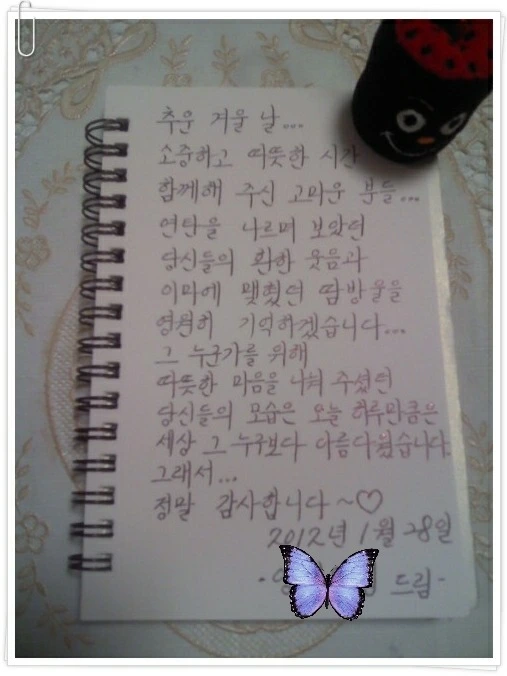 추운 겨울 날...
소중하고 따뜻한 시간
함께해 주신 고마운 분들...
연탄을 나르며 보았던
당신들의 환한 웃음과
이마에 맺혔던 땀방울을
영원히 기억하겠습니다...
그 누군가를 위해
따뜻한 마음을 나눠 주셨던
당신들의 모습은 오늘 하루만큼은
세상 그 누구보다 아름다웠습니다.
그래서...
정말 감사합니다~♡
2012년 1월 28일
드림-